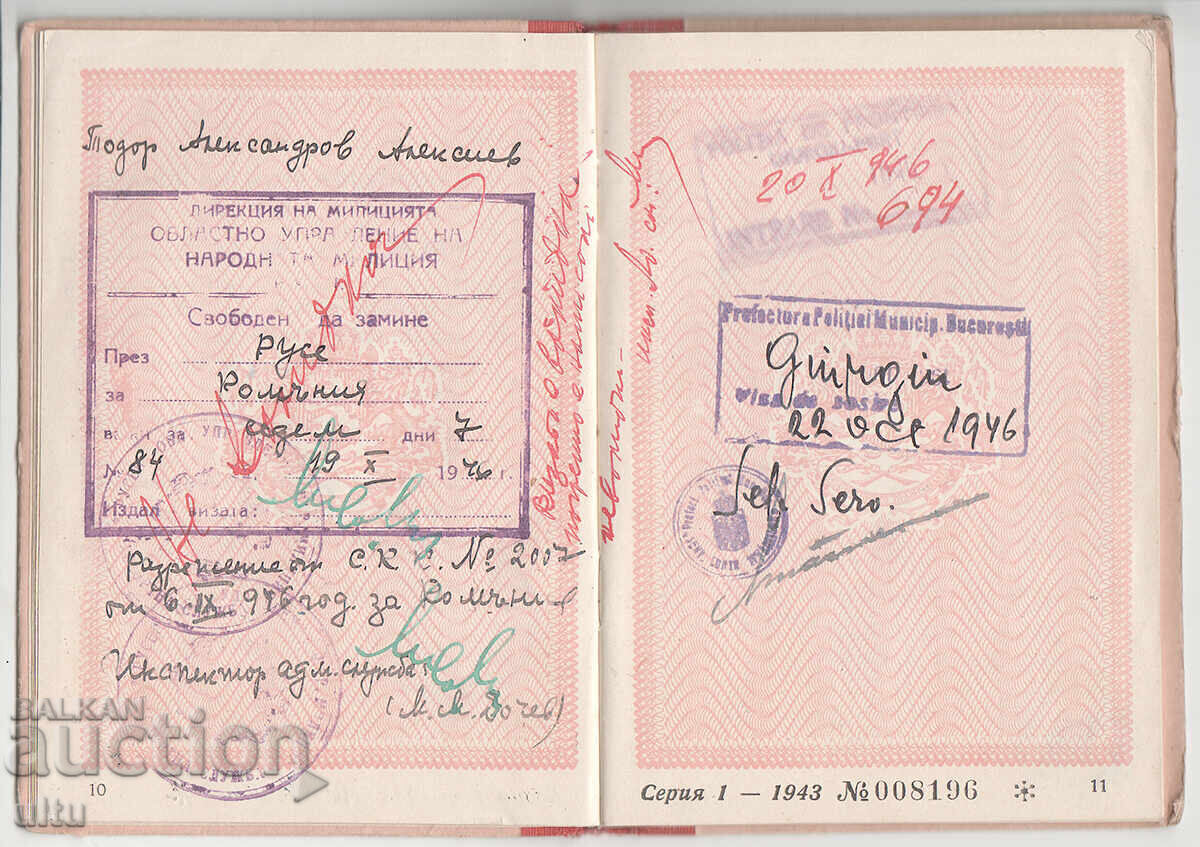 Тодор Александров Алексиев
ДИРЕКЦИЯ НА МИЛИЦИЯТА
ОБЛАСТНО УПРАВЛЕНИЕ НА
НАРОДНАТА МИЛИЦИЯ
Свободен да замине
През Русе
за Ромъния
седем дни 7
№ 84 19 X 1946 г.
Издал визата:
Не
Разрешение от С.К.К. № 2007
от 6 IX 946 год. за Ромъния
Инспектор адм. служба:
(М. М. Дочев)
10
BALKAN
auction
ultu
Визата
погрешно
20 X 946
694
Prefectura Poliţiei Municip. Bucureşti
Giurgiu
Viza de
22 Oct 1946
Sef. Serv.
Серия 1 — 1943 №008196
11